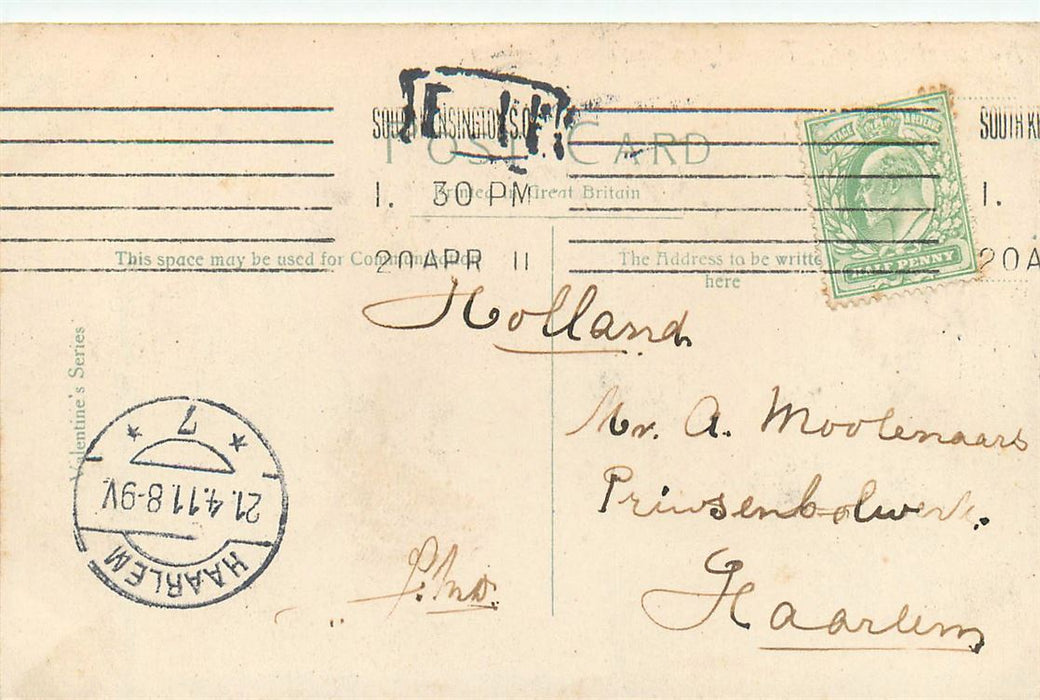 SOUTH KENSINGTON S.O.
SOUTH K
POST CARD
1. 30 PM
1.
Printed in Great Britain
20 APR 11
20 A
POSTAGE REVENUE
HALF PENNY
This space may be used for Communication
The Address to be written
here
Valentine's Series
Holland
Mr. A. Moolenaars
Prinsenbolwerk.
Haarlem
7
21.4.11.8-9V
HAARLEM